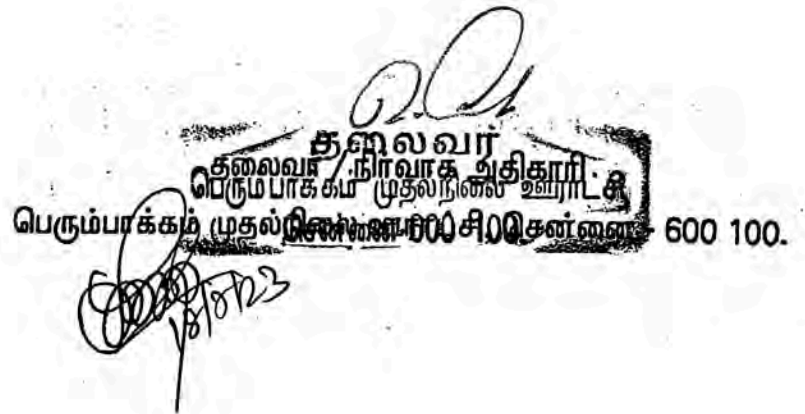 தலைவர்
தலைவர் / நிர்வாக அதிகாரி
பெரும்பாக்கம் முதல்நிலை ஊராட்சி
பெரும்பாக்கம் முதல்நிலை ஊராட்சி, சென்னை - 600 100.
சென்னை - 600 100.
18/8/23